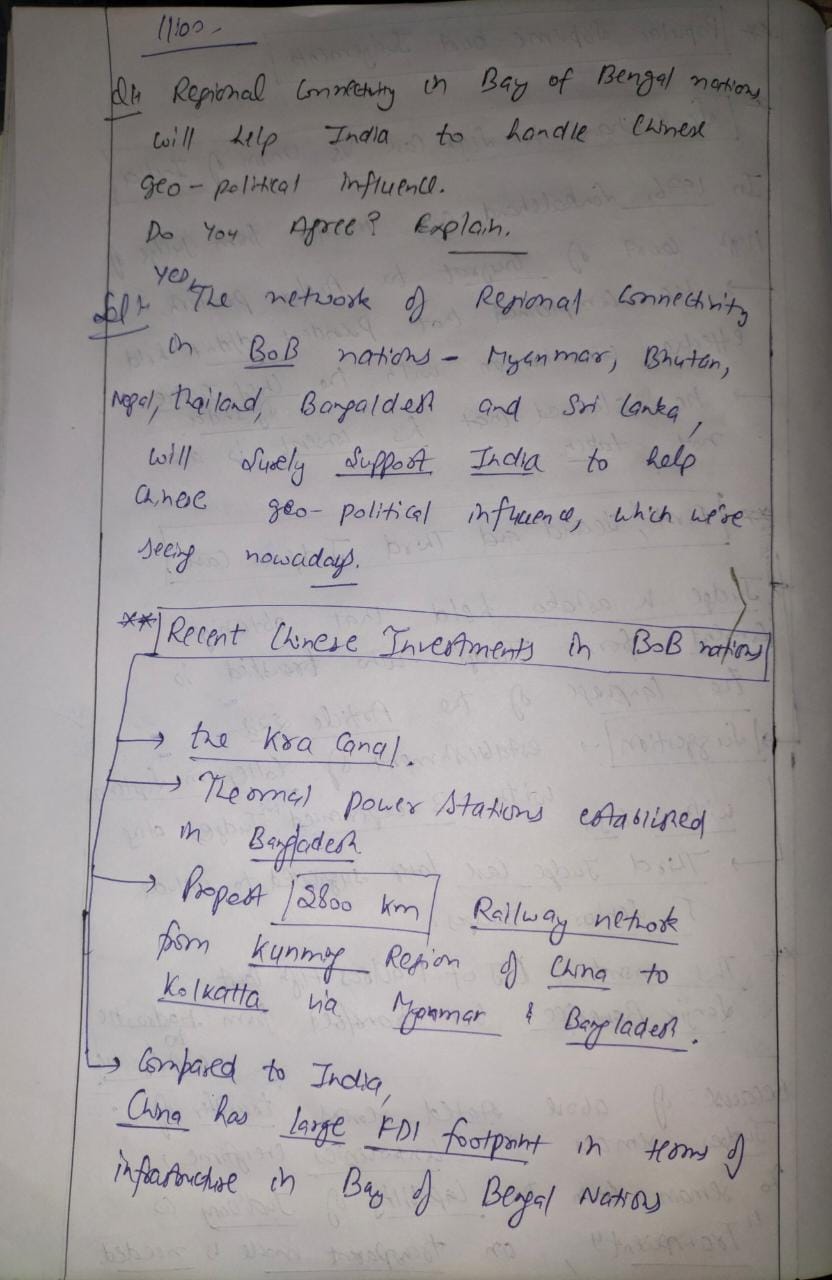 11:00
Q1:- Regional Connectivity in Bay of Bengal nations
will help India to handle Chinese
geo-political influence.
Do You Agree? Explain.
Sol:- Yes, The network of Regional Connectivity
in BoB nations - Myanmar, Bhutan,
Nepal, Thailand, Bangaldesh and Sri Lanka,
will surely support India to help
Chinese geo-political influence, which we're
seeing nowadays.
** Recent Chinese Investments in BoB nations
→ the Kra Canal.
→ Thermal power stations established
in Bangladesh
→ Propest 2800 km Railway network
from Kunming Region of China to
Kolkatta via Myanmar & Bangladesh.
→ Compared to India,
China has large FDI footprint in terms of
infrastructure in Bay of Bengal Nations